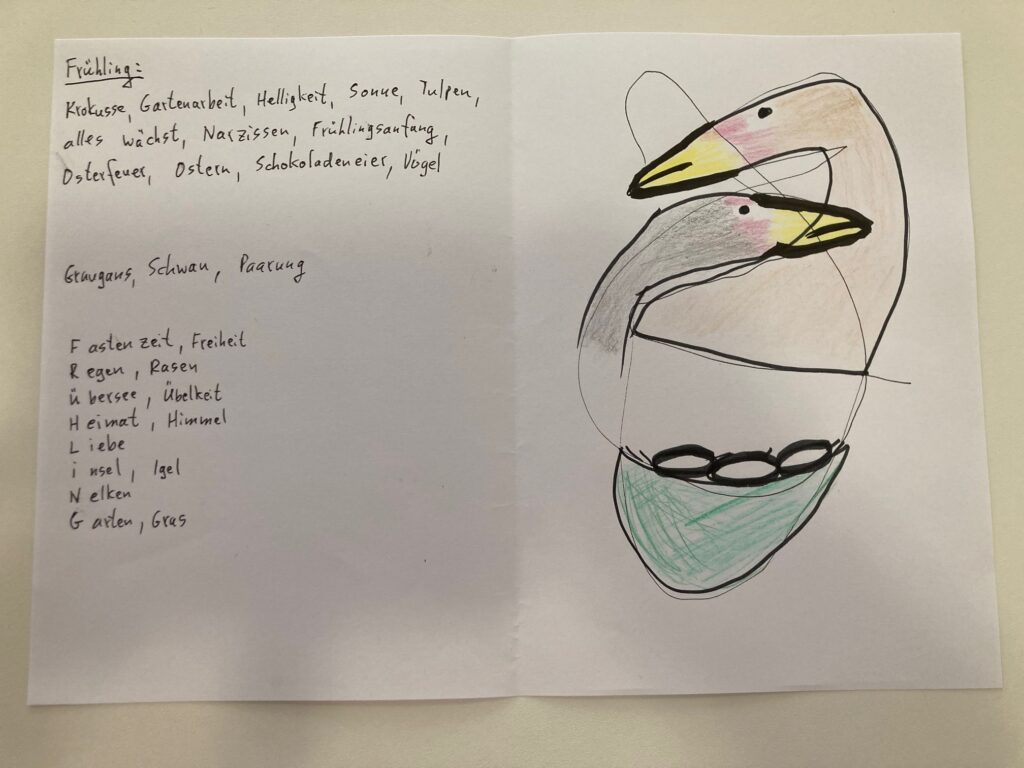 Frühling:
Krokusse, Gartenarbeit, Helligkeit, Sonne, Tulpen,
alles wächst, Narzissen, Frühlingsanfang,
Osterfeuer, Ostern, Schokoladeneier, Vögel
Graugans, Schwan, Paarung
F asten zeit, Freiheit
R egen, Rasen
ü bersee, Übelkeit
H eimat, Himmel
L iebe
i nsel, Igel
N elken
G arten, Gras